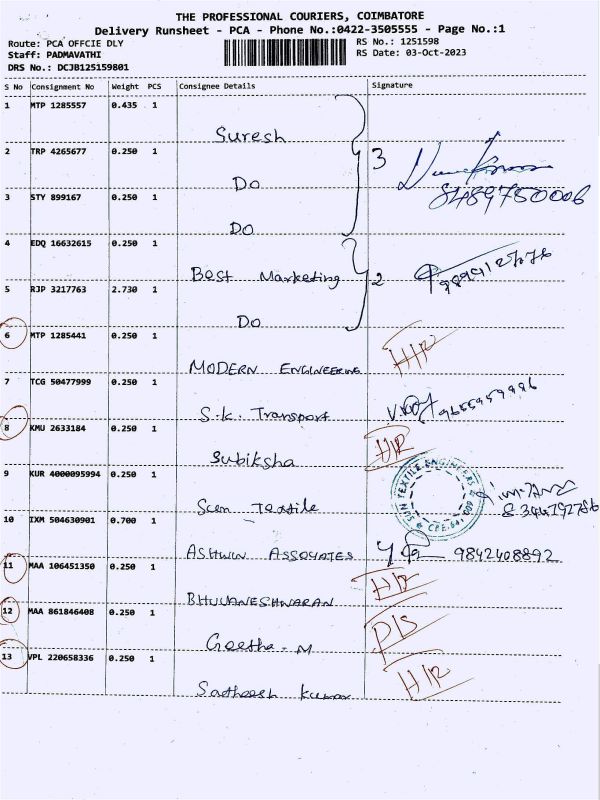 THE PROFESSIONAL COURIERS, COIMBATORE
Delivery Runsheet - PCA - Phone No.:0422-3505555 - Page No.:1
Route: PCA OFFCIE DLY RS No.: 1251598
Staff: PADMAVATHI RS Date: 03-Oct-2023
DRS No.: DCJB125159801
S No Consignment No Weight PCS Consignee Details Signature
1 MTP 1285557 0.435 1
Suresh
2 TRP 4265677 0.250 1 3
Do 8489750006
3 STY 899167 0.250 1
Do
4 EDQ 16632615 0.250 1
Best Marketing
5 RJP 3217763 2.730 1 2
Do
6 MTP 1285441 0.250 1
MODERN ENGINEERING H/R
7 TCG 50477999 0.250 1
S.K. Transport 9655959996
8 KMU 2633184 0.250 1
Subiksha H/R
9 KUR 4000095994 0.250 1 SUN TEXTILE ENGINEERS
Sun Textile CBE.64, 009
10 IXM 504630901 0.700 1
ASHWIN ASSOYATES 9842408892
11 MAA 106451350 0.250 1
BHUVANESHWARAN H/R
12 MAA 861846408 0.250 1
Geetha - M D/S
13 VPL 220658336 0.250 1
Sadheesh Kumar H/R